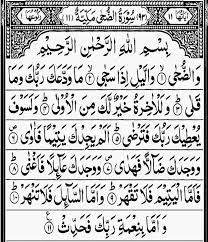 (۹۳) سُوْرَةُ الضُّحٰى مَكِّيَّةٌ (۱۱)
بِسْمِ اللّٰهِ الرَّحْمٰنِ الرَّحِيْمِ
وَالضُّحٰى ۱ وَالَّيْلِ اِذَا سَجٰى ۲ مَا وَدَّعَكَ رَبُّكَ وَمَا
قَلٰى ۳ وَلَلْاٰخِرَةُ خَيْرٌ لَّكَ مِنَ الْاُوْلٰى ۴ وَلَسَوْفَ
يُعْطِيْكَ رَبُّكَ فَتَرْضٰى ۵ اَلَمْ يَجِدْكَ يَتِيْمًا فَاٰوٰى ۶
وَوَجَدَكَ ضَآلًّا فَهَدٰى ۷ وَوَجَدَكَ عَآئِلًا فَاَغْنٰى ۸
فَاَمَّا الْيَتِيْمَ فَلَا تَقْهَرْ ۹ وَاَمَّا السَّآئِلَ فَلَا تَنْهَرْ ۱۰
وَاَمَّا بِنِعْمَةِ رَبِّكَ فَحَدِّثْ ۱۱